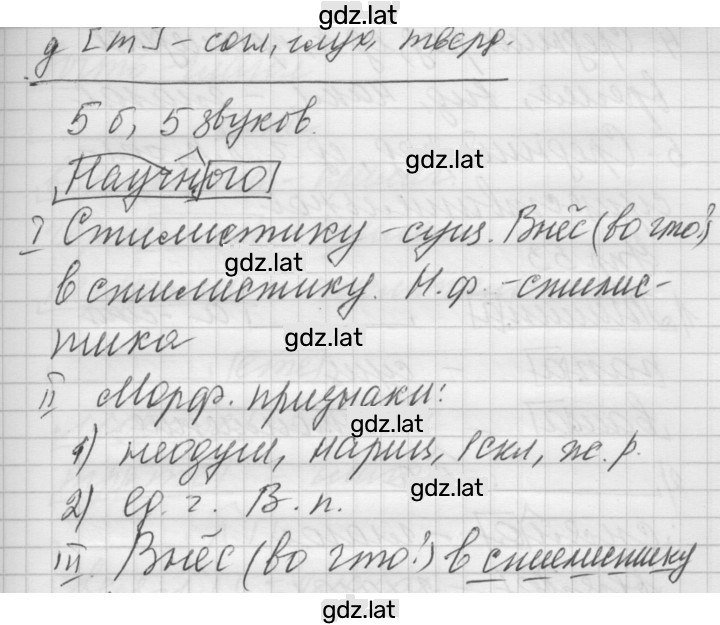 gdz.lat
д [т] - согл, глух, тверд.
5 б, 5 звуков.
gdz.lat
Научного
I Стилистику - сущ. Внёс (во что?)
gdz.lat
в стилистику. Н.ф. - стилис-
gdz.lat
тика
II Морф. признаки:
gdz.lat
1) неодуш, нариц, 1скл, ж.р.
gdz.lat
2) ед.ч. В.п.
III. Внёс (во что?) в стилистику
gdz.lat